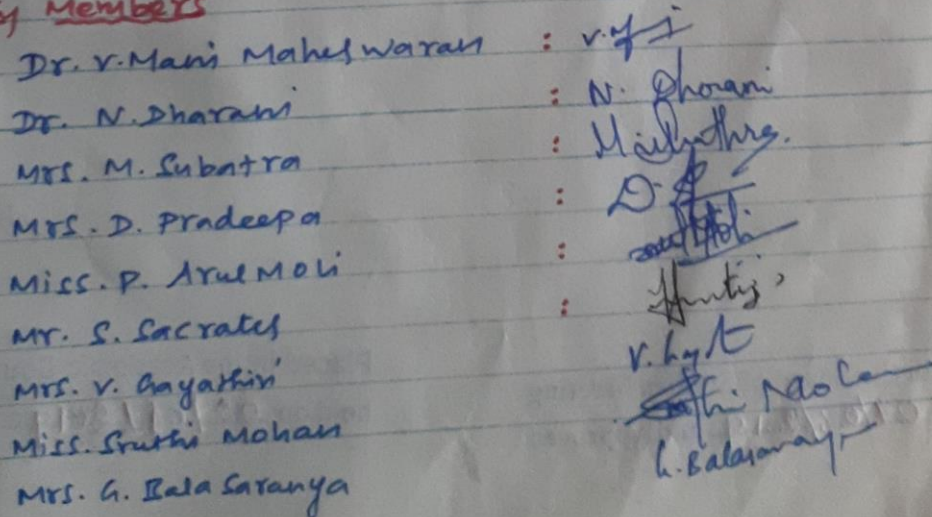 y Members
Dr. V. Mani Maheswaran :
Dr. N. Dharani : N. Dharani
Mrs. M. Subatra :
Mrs. D. Pradeepa : D.
Miss. P. Arul Moli :
Mr. S. Sacrates :
Mrs. V. Gayathiri V.
Miss. Sruthi Mohan
Mrs. G. Bala Saranya G. Balasaranya